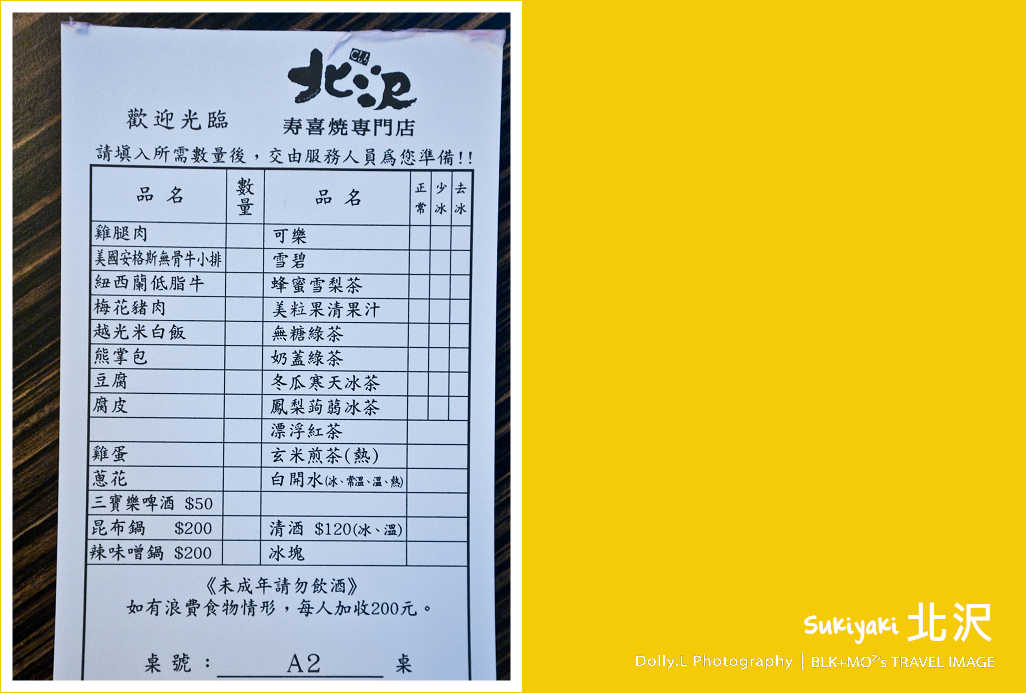 北沢
歡迎光臨
寿喜燒専門店
請填入所需數量後，交由服務人員爲您準備!!
品名 數量 品名 正常 少冰 去冰
雞腿肉 可樂
美國安格斯無骨牛小排 雪碧
紐西蘭低脂牛 蜂蜜雪梨茶
梅花豬肉 美粒果清果汁
越光米白飯 無糖綠茶
熊掌包 奶蓋綠茶
豆腐 冬瓜寒天冰茶
腐皮 鳳梨蒟蒻冰茶
漂浮紅茶
雞蛋 玄米煎茶(熱)
蔥花 白開水(冰、常溫、溫、熱)
三寶樂啤酒 $50
昆布鍋 $200 清酒 $120(冰、溫)
辣味噌鍋 $200 冰塊
《未成年請勿飲酒》
如有浪費食物情形，每人加收200元。
桌號： A2 桌
Sukiyaki 北沢
Dolly.L Photography | BLK+MO²'s TRAVEL IMAGE